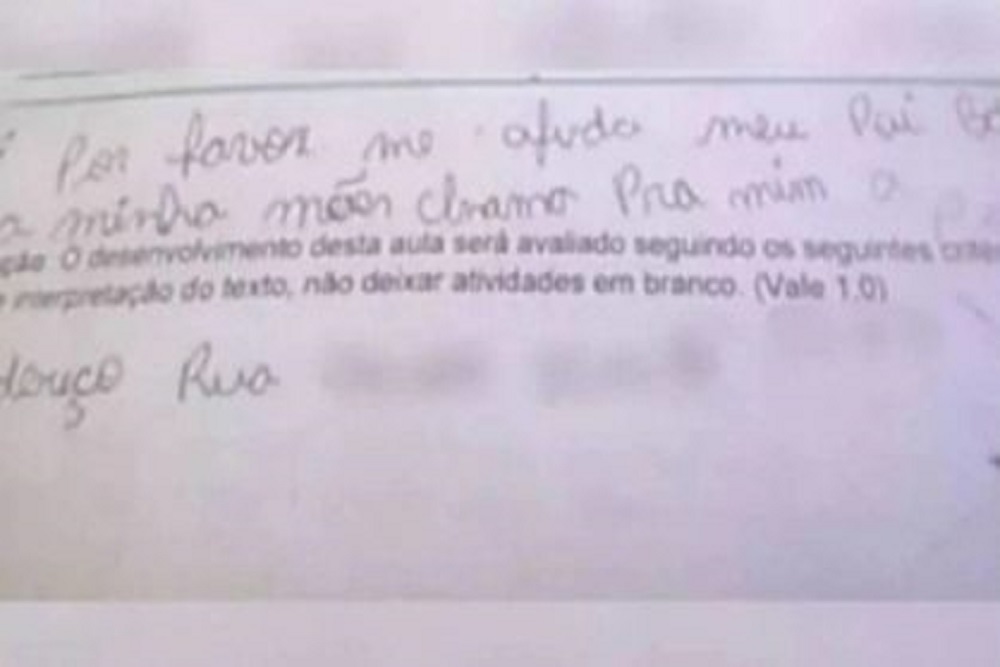 Por favor me ajuda meu Pai
a minha mãen chamo Pra mim a
ção O desenvolvimento desta aula será avaliado seguindo os seguintes
interpretação do texto, não deixar atividades em branco. (Vale 1.0)
Rua